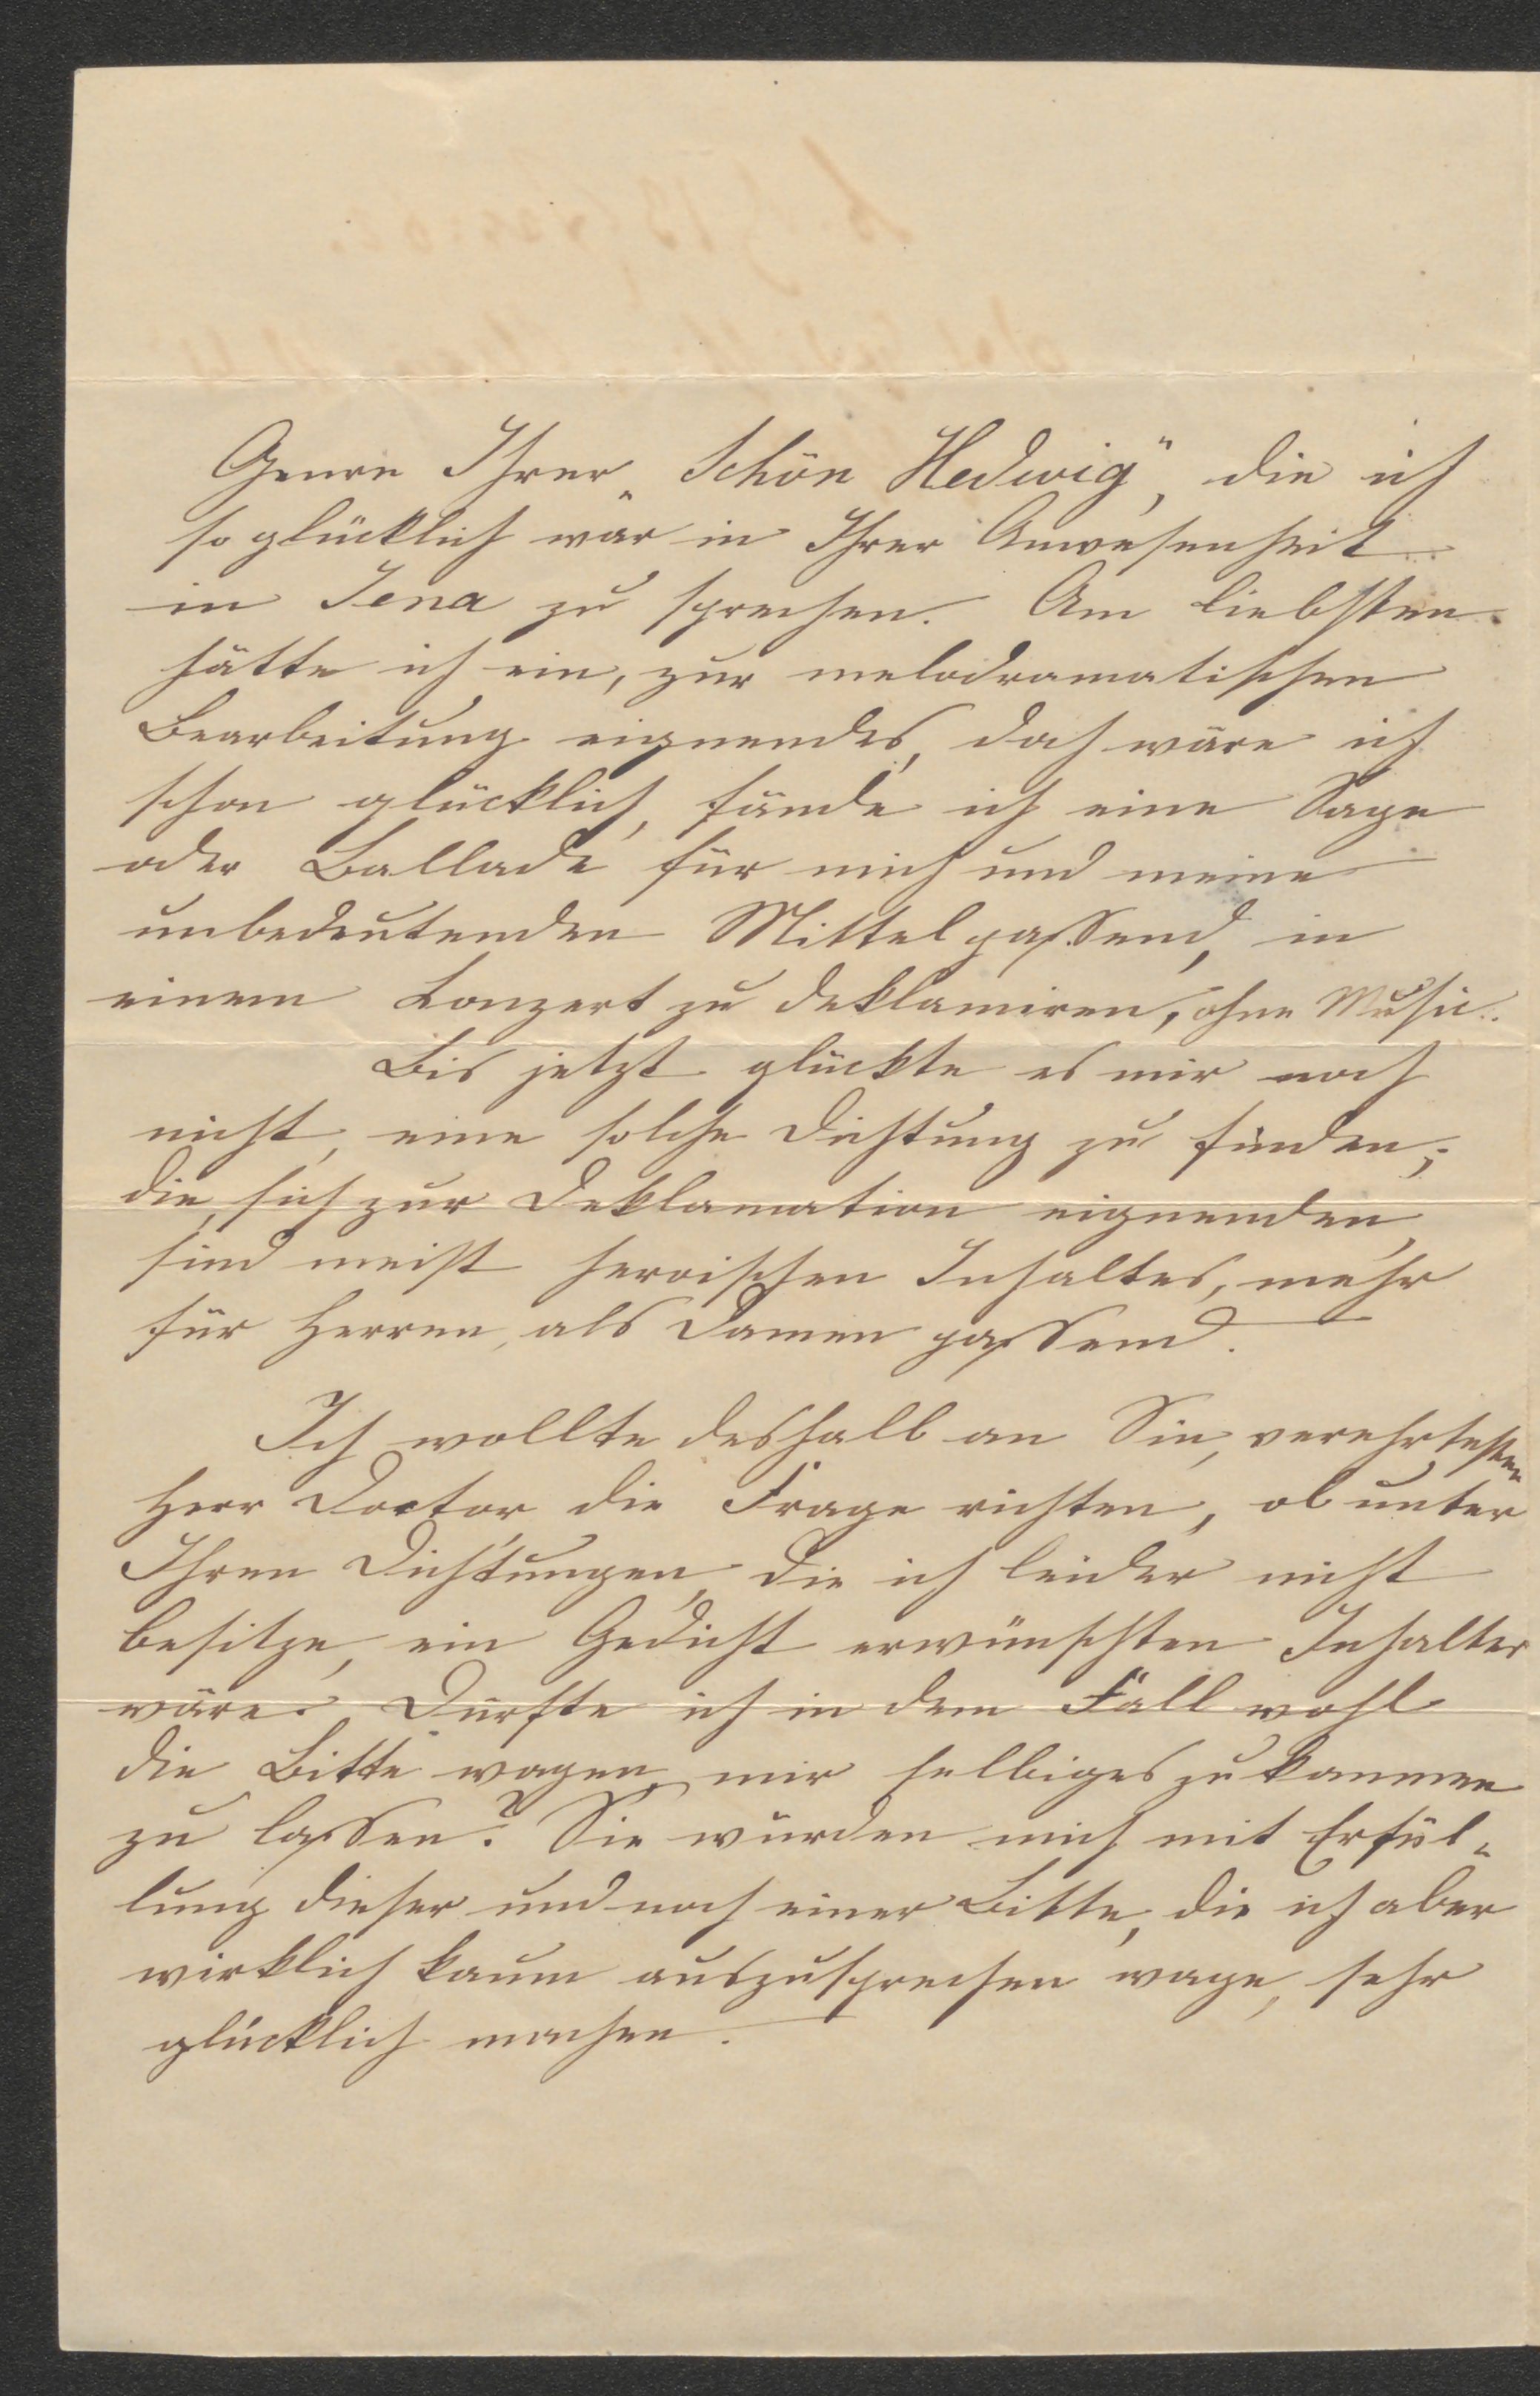 Genre Ihrer „Schön Hedwig", die ich
so glücklich war in Ihrer Anwesenheit
in Jena zu sprechen. Am liebsten
hätte ich ein, zur melodramatischen
Bearbeitung eignendes, doch wäre ich
schon glücklich, fände ich eine Sage
oder Ballade für mich und meine
unbedeutenden Mittel passend, in
einem Conzert zu deklamiren, ohne Music.
Bis jetzt glückte es mir noch
nicht, eine solche Dichtung zu finden;
die, sich zur Deklamation eignenden,
sind meist heroischen Inhaltes, mehr
für Herren, als Damen passend.
Ich wollte deshalb an Sie, verehrtester
Herr Doctor die Frage richten, ob unter
Ihren Dichtungen, die ich leider nicht
besitze, ein Gedicht erwünschten Inhaltes
wäre. Dürfte ich in dem Fall wohl
die Bitte wagen, mir selbiges zukommen
zu lassen? Sie würden mich mit Erfül-
lung dieser und noch einer Bitte, die ich aber
wirklich kaum auszusprechen wage, sehr
glücklich machen.